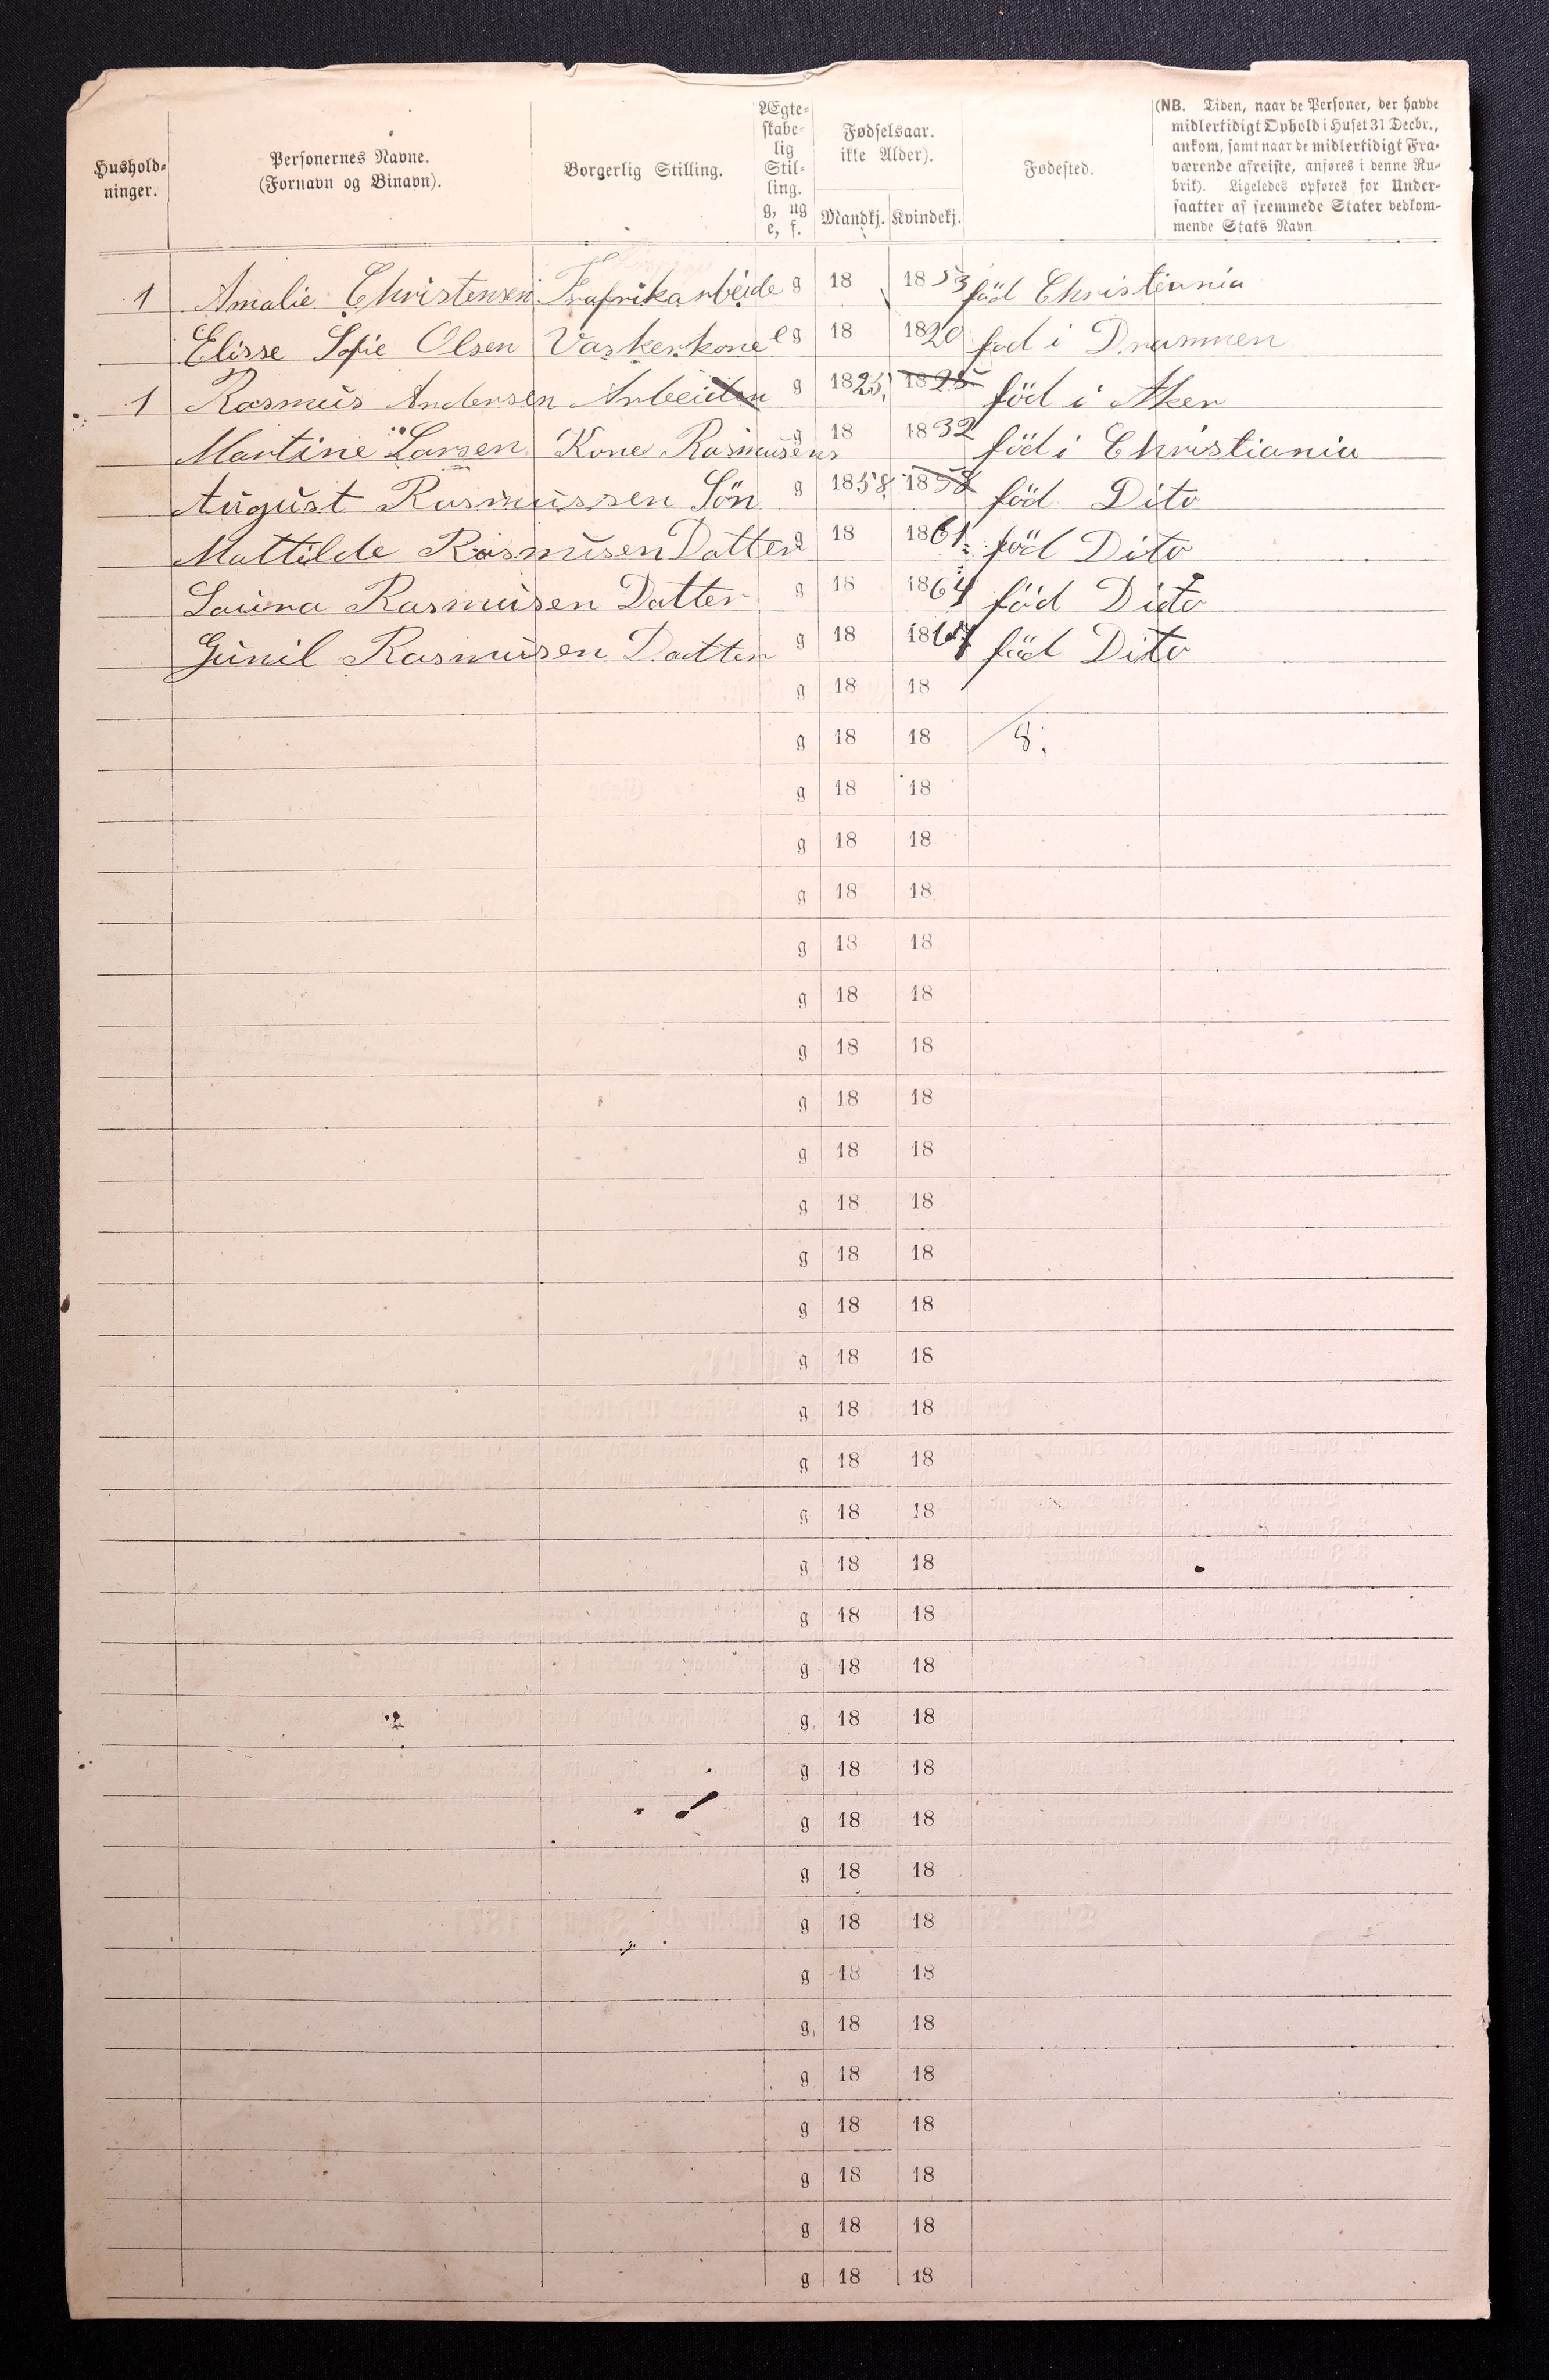 Hushold-
ninger.
Personernes Navne.
(Fornavn og Binavn).
Borgerlig Stilling.
Ægte-
skabe-
lig
Stil-
ling.
g, ug
e, f.
Fødselsaar.
ikke Alder).
Mandkj. Kvindekj.
Fødested.
(NB. Tiden, naar de Personer, der havde
midlertidigt Ophold i Huset 31 Decbr.,
ankom, samt naar de midlertidigt Fra-
værende afreiste, anføres i denne Ru-
brik). Ligeledes opføres for Under-
saatter af fremmede Stater vedkom-
mende Stats Navn.
1 Amalie Christensen g 18 1853 föd Christiania
Elisse Sofie Olsen Vaskerkone e g 18 1820 fod i Drammen
1 Rasmus Andersen Arbeider g 1825 1825 föd i Aker
Martine Larsen Kone Rasmusens g 18 1832 föd i Christiania
August Rasmussen Sön g 1858 1858 föd Dito
Mattilde Rasmusen Datter g 18 1861 föd Dito
Laura Rasmusen Datter g 18 1864 föd Dito
Gunil Rasmusen Datter g 18 1867 föd Dito
g 18 18
g 18 18 8.
g 18 18
g 18 18
g 18 18
g 18 18
g 18 18
g 18 18
g 18 18
g 18 18
g 18 18
g 18 18
g 18 18
g 18 18
g 18 18
g 18 18
g 18 18
g 18 18
g 18 18
g 18 18
g 18 18
g 18 18
g 18 18
g 18 18
g 18 18
g 18 18
g 18 18
g 18 18
g 18 18
g 18 18
g 18 18
g 18 18